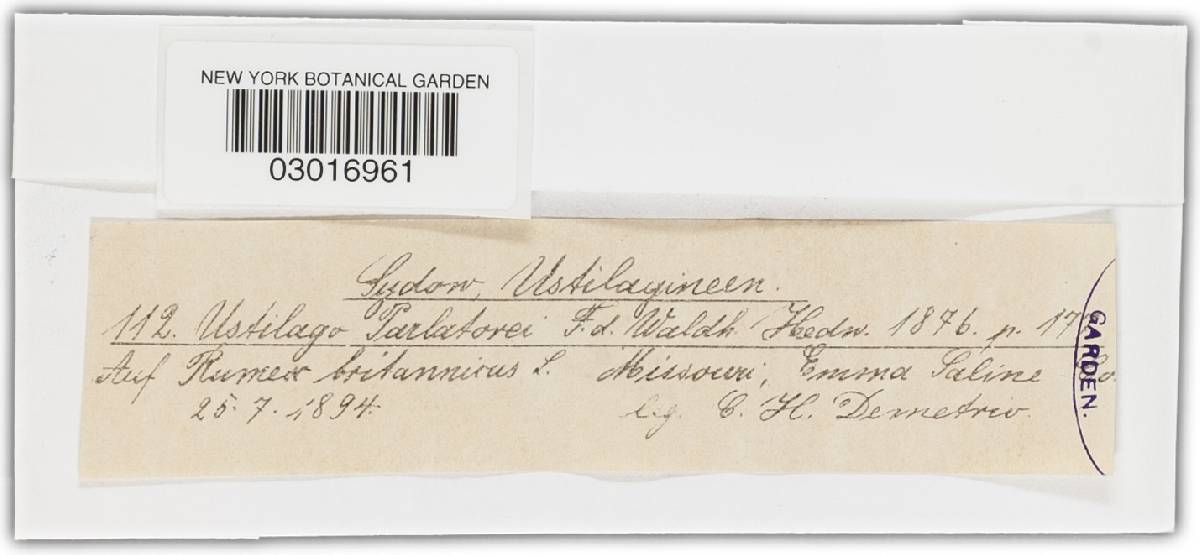 NEW YORK BOTANICAL GARDEN
03016961
Sydow, Ustilagineen.
112. Ustilago Parlatorei F. d. Waldh. Hedw. 1876. p. 17
Auf Rumex britannicus L. Missouri, Emma Saline Co.
25. 7. 1894. leg. C. H. Demetrio.
GARDEN.